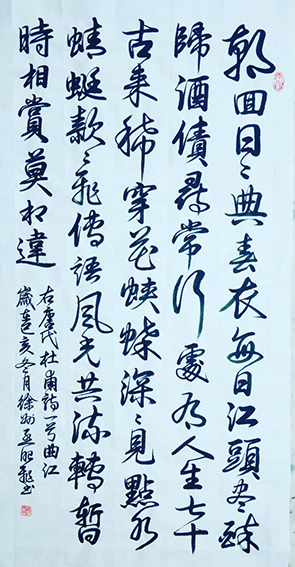 朝回日々典春衣每日江頭盡醉
歸酒債尋常行處有人生七十
古來稀穿花蛺蝶深々見點水
蜻蜓款々飛傳語風光共流轉暫
時相賞莫相違
右唐代杜甫詩一首曲江
歲亥冬月徐州書